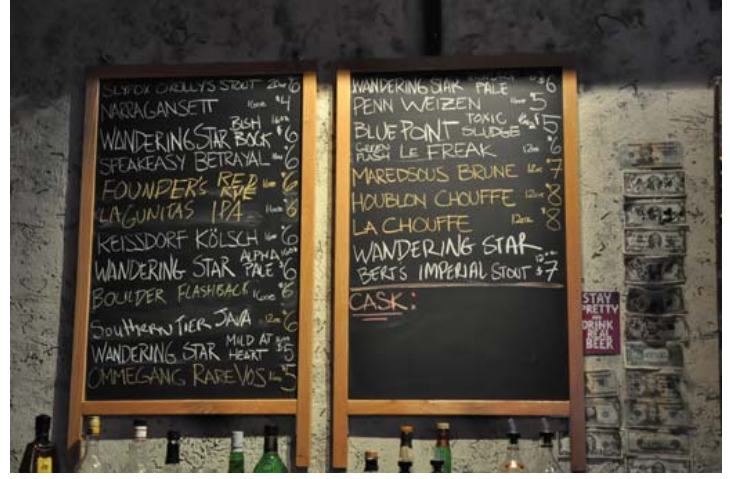 SLYFOX O'REILLY'S STOUT 20oz 6
NARRAGANSETT 16oz $4
WANDERING STAR BISH BOCK 16oz $6
SPEAKEASY BETRAYAL 6
FOUNDER'S RED RYE 16oz $6
LAGUNITAS IPA 16oz 6
REISSDORF KÖLSCH 16oz $6
WANDERING STAR ALPHA PALE 16oz $6
BOULDER FLASHBACK 16oz $6
SOUTHERN TIER JAVA 12oz $6
WANDERING STAR MILD AT HEART $5
OMMEGANG RARE VOS 5
WANDERING STAR PALE $6
PENN WEIZEN 16oz $5
BLUE POINT TOXIC SLUDGE $5
GREEN FLASH LE FREAK 12oz $6
MAREDSOUS BRUNE 12oz $7
HOUBLON CHOUFFE 12oz $8
LA CHOUFFE 12oz $8
WANDERING STAR
BERT'S IMPERIAL STOUT 12oz $7
CASK:
STAY
PRETTY
DRINK
REAL
BEER